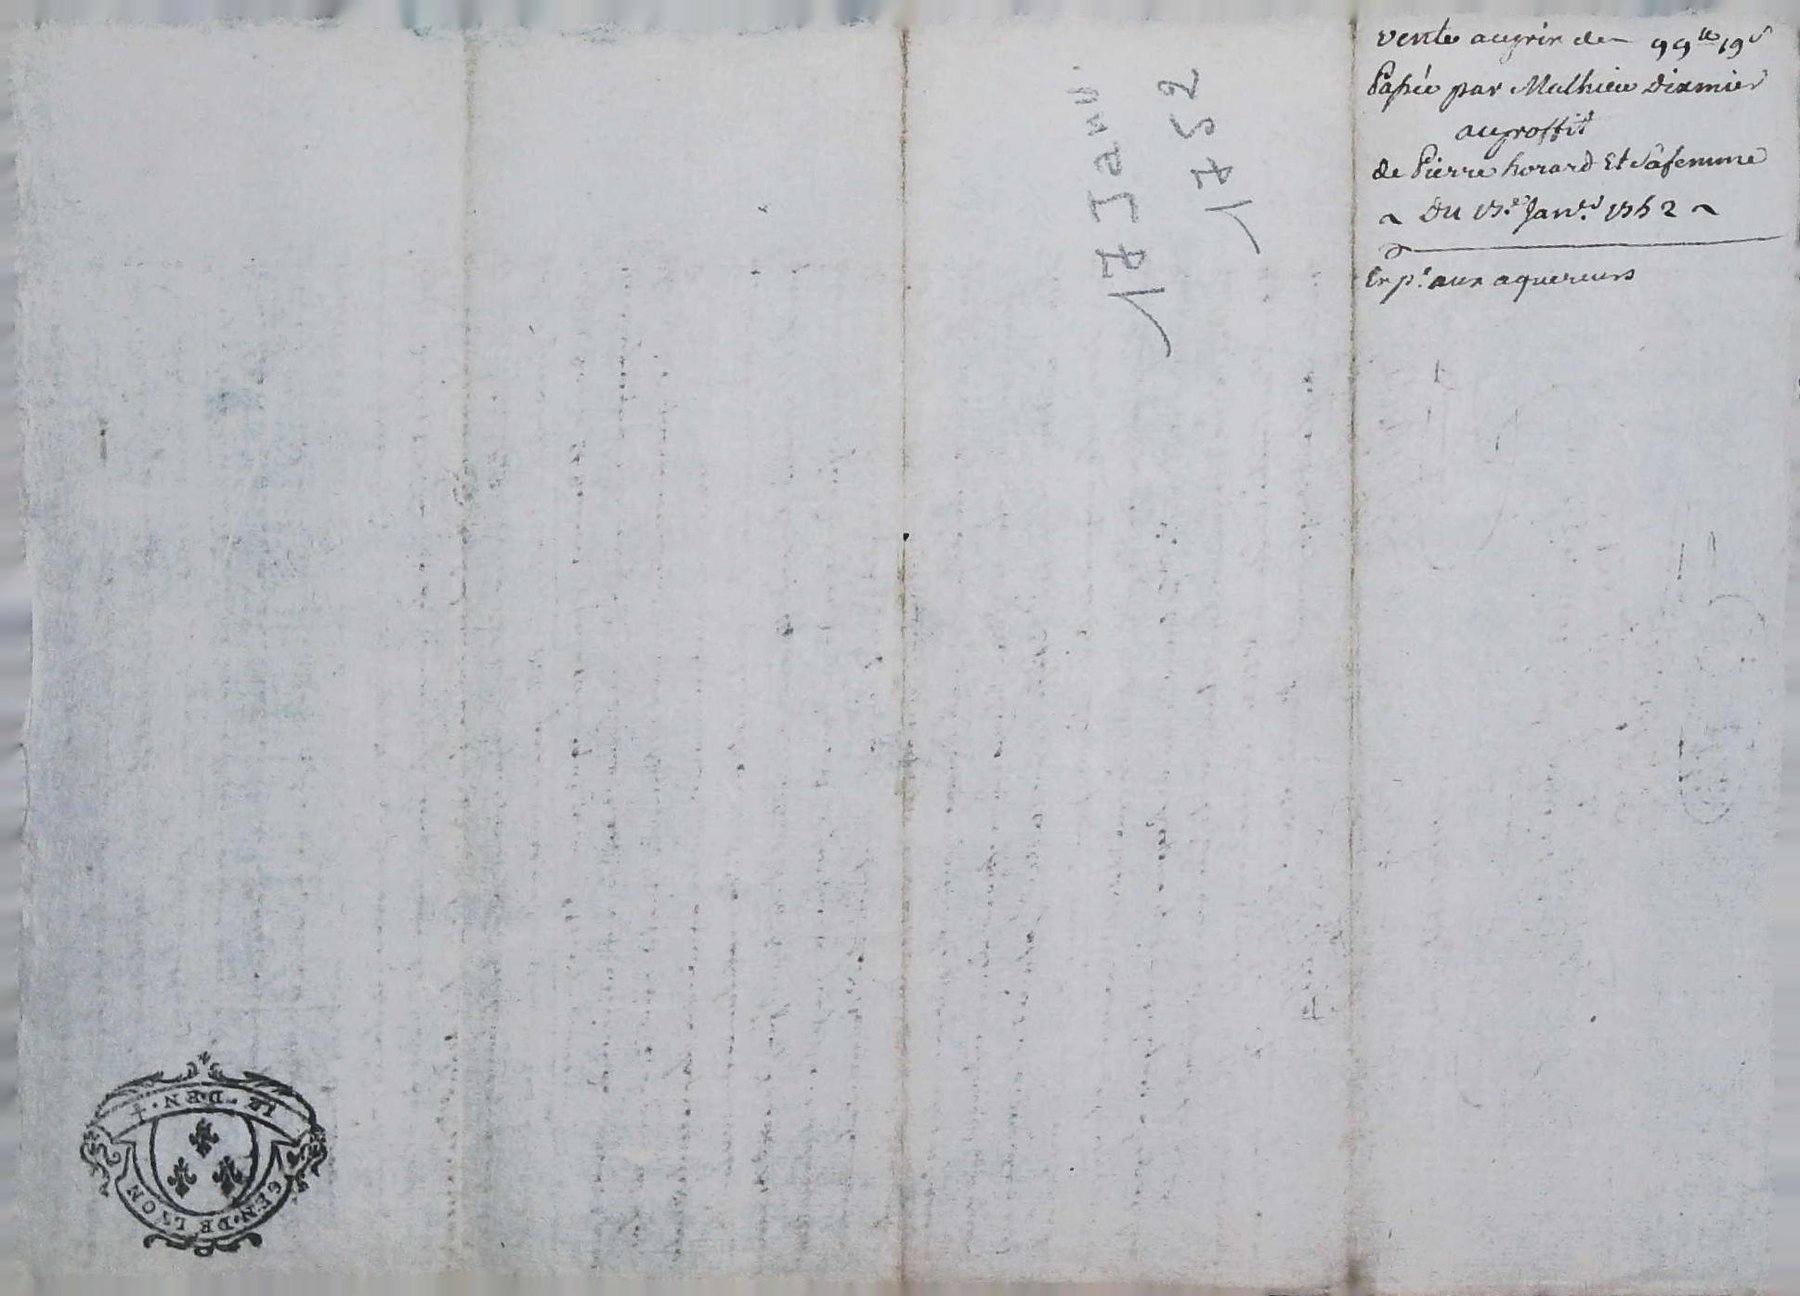 vente au prix de 99ᵗᵗ 19ˢ
Passée par Mathieu Dixmier
au proffit
de Pierre horard Et Sa femme
~ Du 17.ᵉ Janv.ʳ 1752 ~
Exp.ᵉ aux aquereurs
17 Janv.
1752
LE · DEN ·
GEN · DE LYON